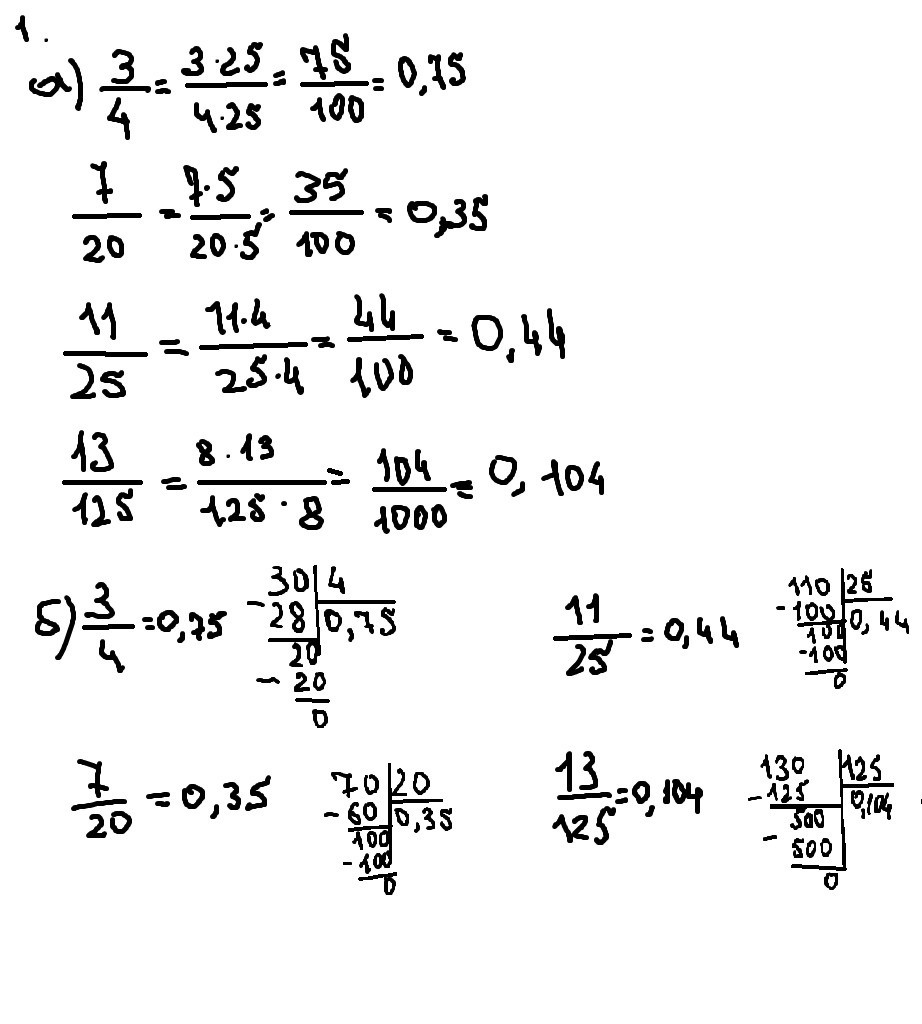 1.
а) 3/4 = 3·25/4·25 = 75/100 = 0,75
7/20 = 7·5/20·5 = 35/100 = 0,35
11/25 = 11·4/25·4 = 44/100 = 0,44
13/125 = 8·13/125·8 = 104/1000 = 0,104
б) 3/4 = 0,75
30 | 4
- 28 | 0,75
20
- 20
0
11/25 = 0,44
110 | 25
- 100 | 0,44
100
- 100
0
7/20 = 0,35
70 | 20
- 60 | 0,35
100
- 100
0
13/125 = 0,104
130 | 125
- 125 | 0,104
500
- 500
0